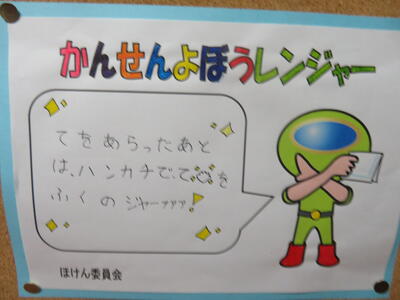 かんせんよぼうレンジャー
てをあらったあと
は、ハンカチで、てを
ふくのジャーァァァ!
ほけん委員会